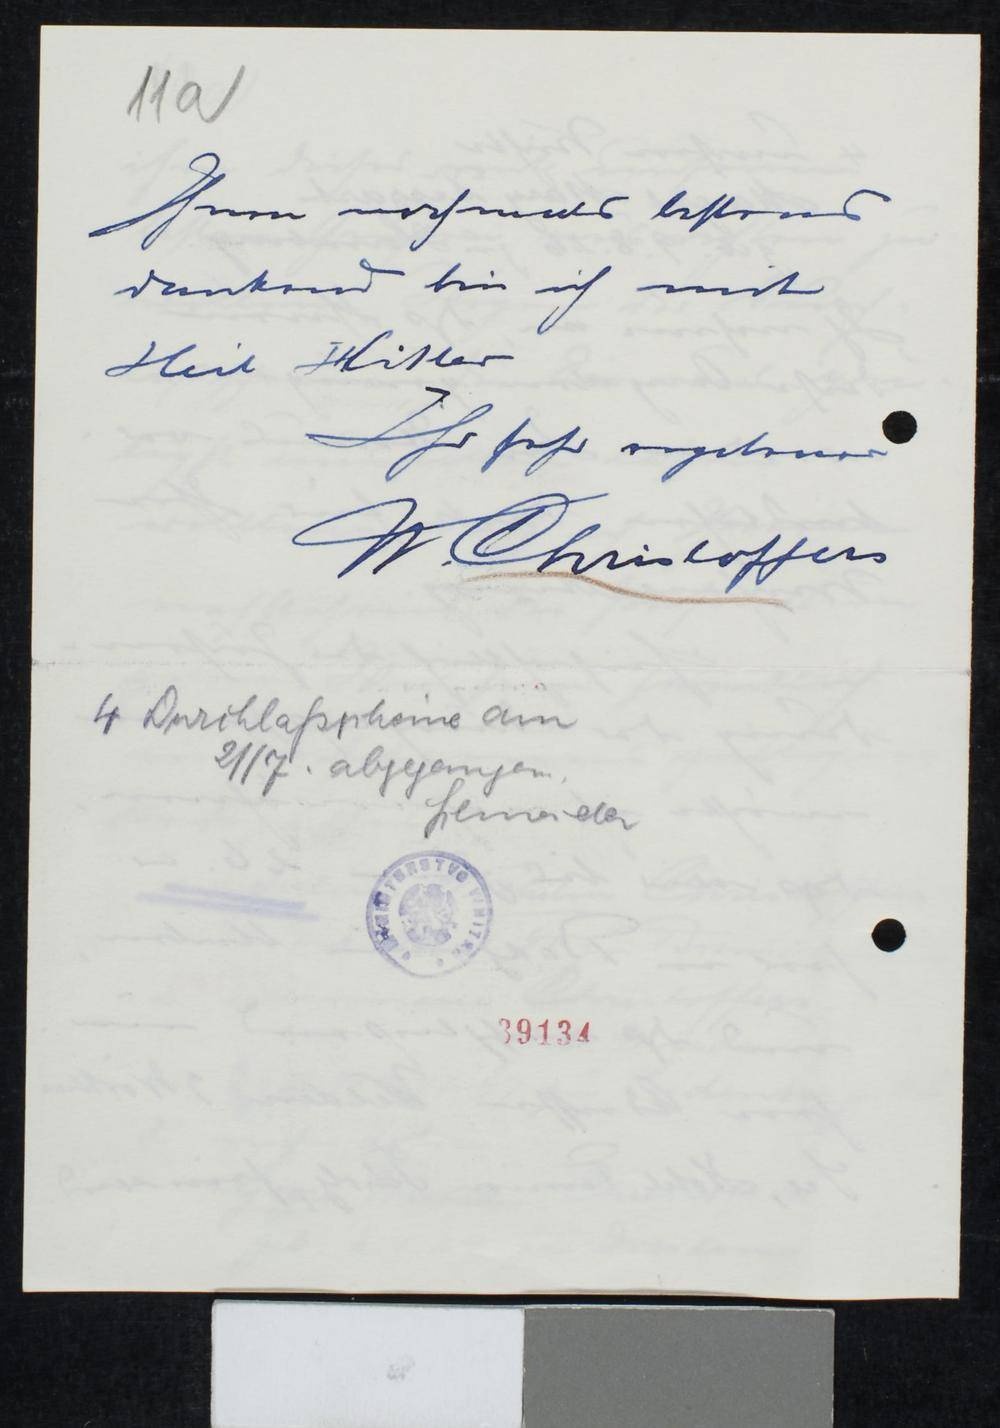 11a
Ihnen nochmals bestens
dankend bin ich mit
Heil Hitler
Ihr sehr ergebener
W. Christoffers
4 Durchlaßscheine am
21/7. abgegangen.
MINISTERSTVO VNITRA
39134